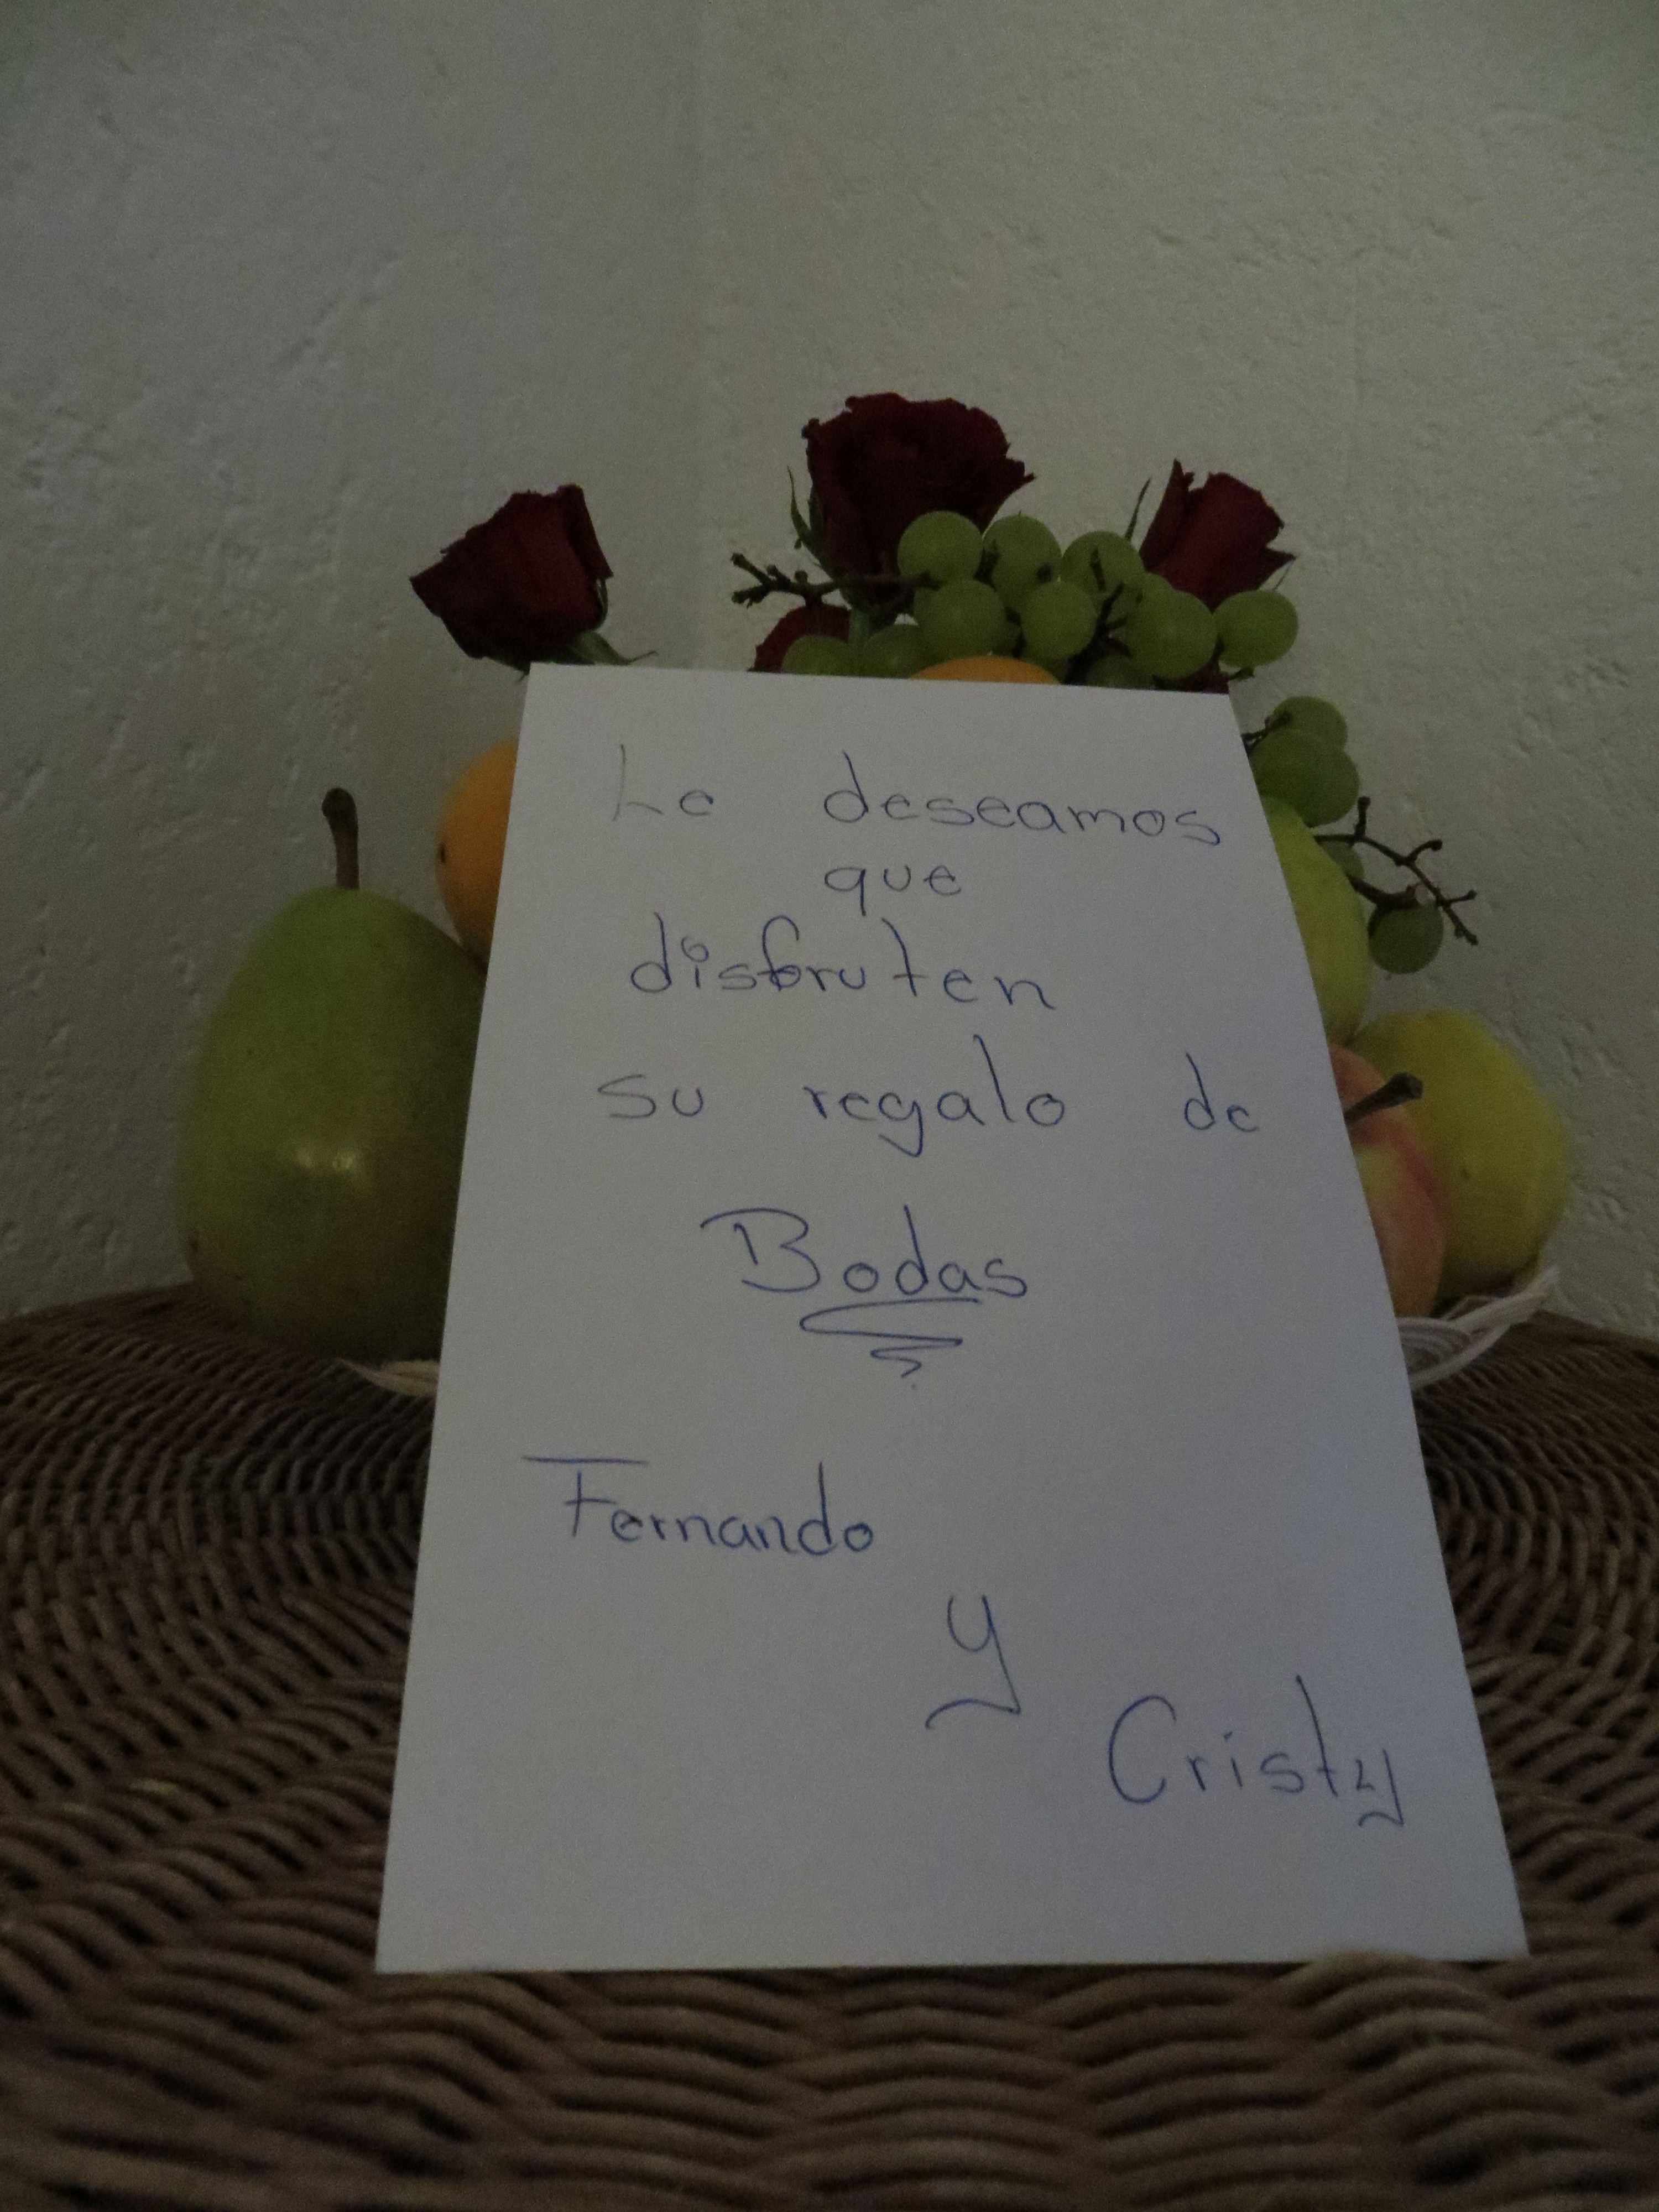 Le deseamos
que
disfruten
su regalo de
Bodas
Fernando
y
Cristy